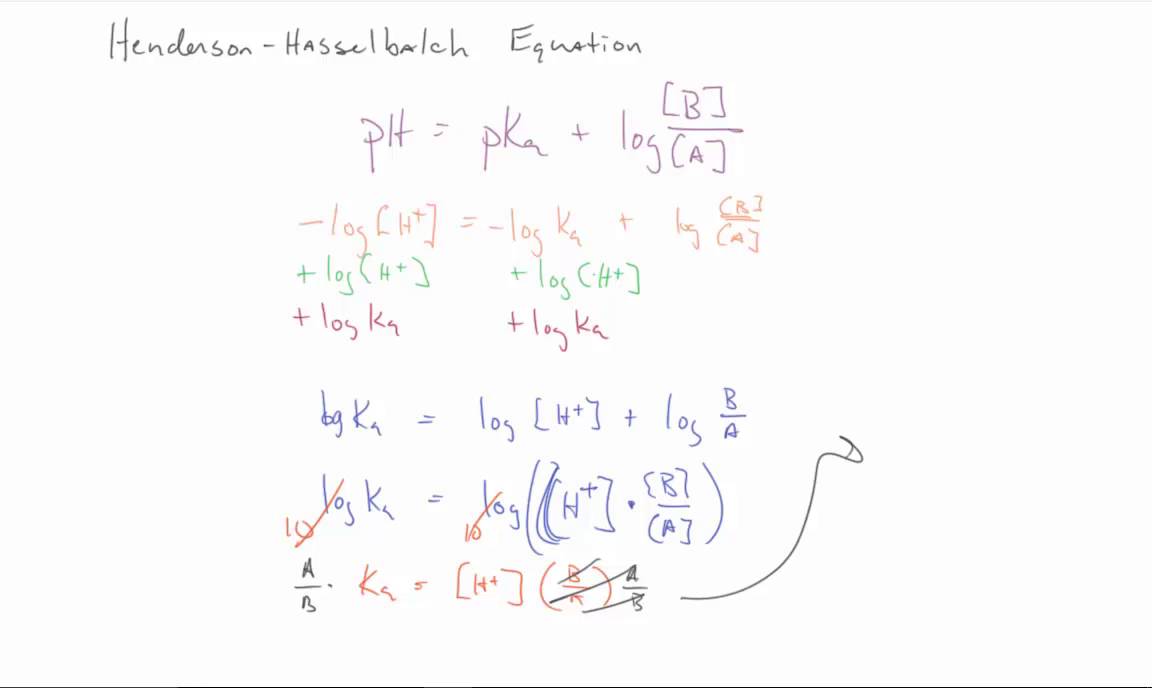 Henderson-Hasselbalch Equation
pH = pKa + log [B]/[A]
-log[H+] = -log Ka + log [B]/[A]
+log[H+] +log[H+]
+log Ka +log Ka
log Ka = log [H+] + log B/A
log Ka = log([H+] · [B]/[A])
10 10
A/B · Ka = [H+] (B/A) A/B